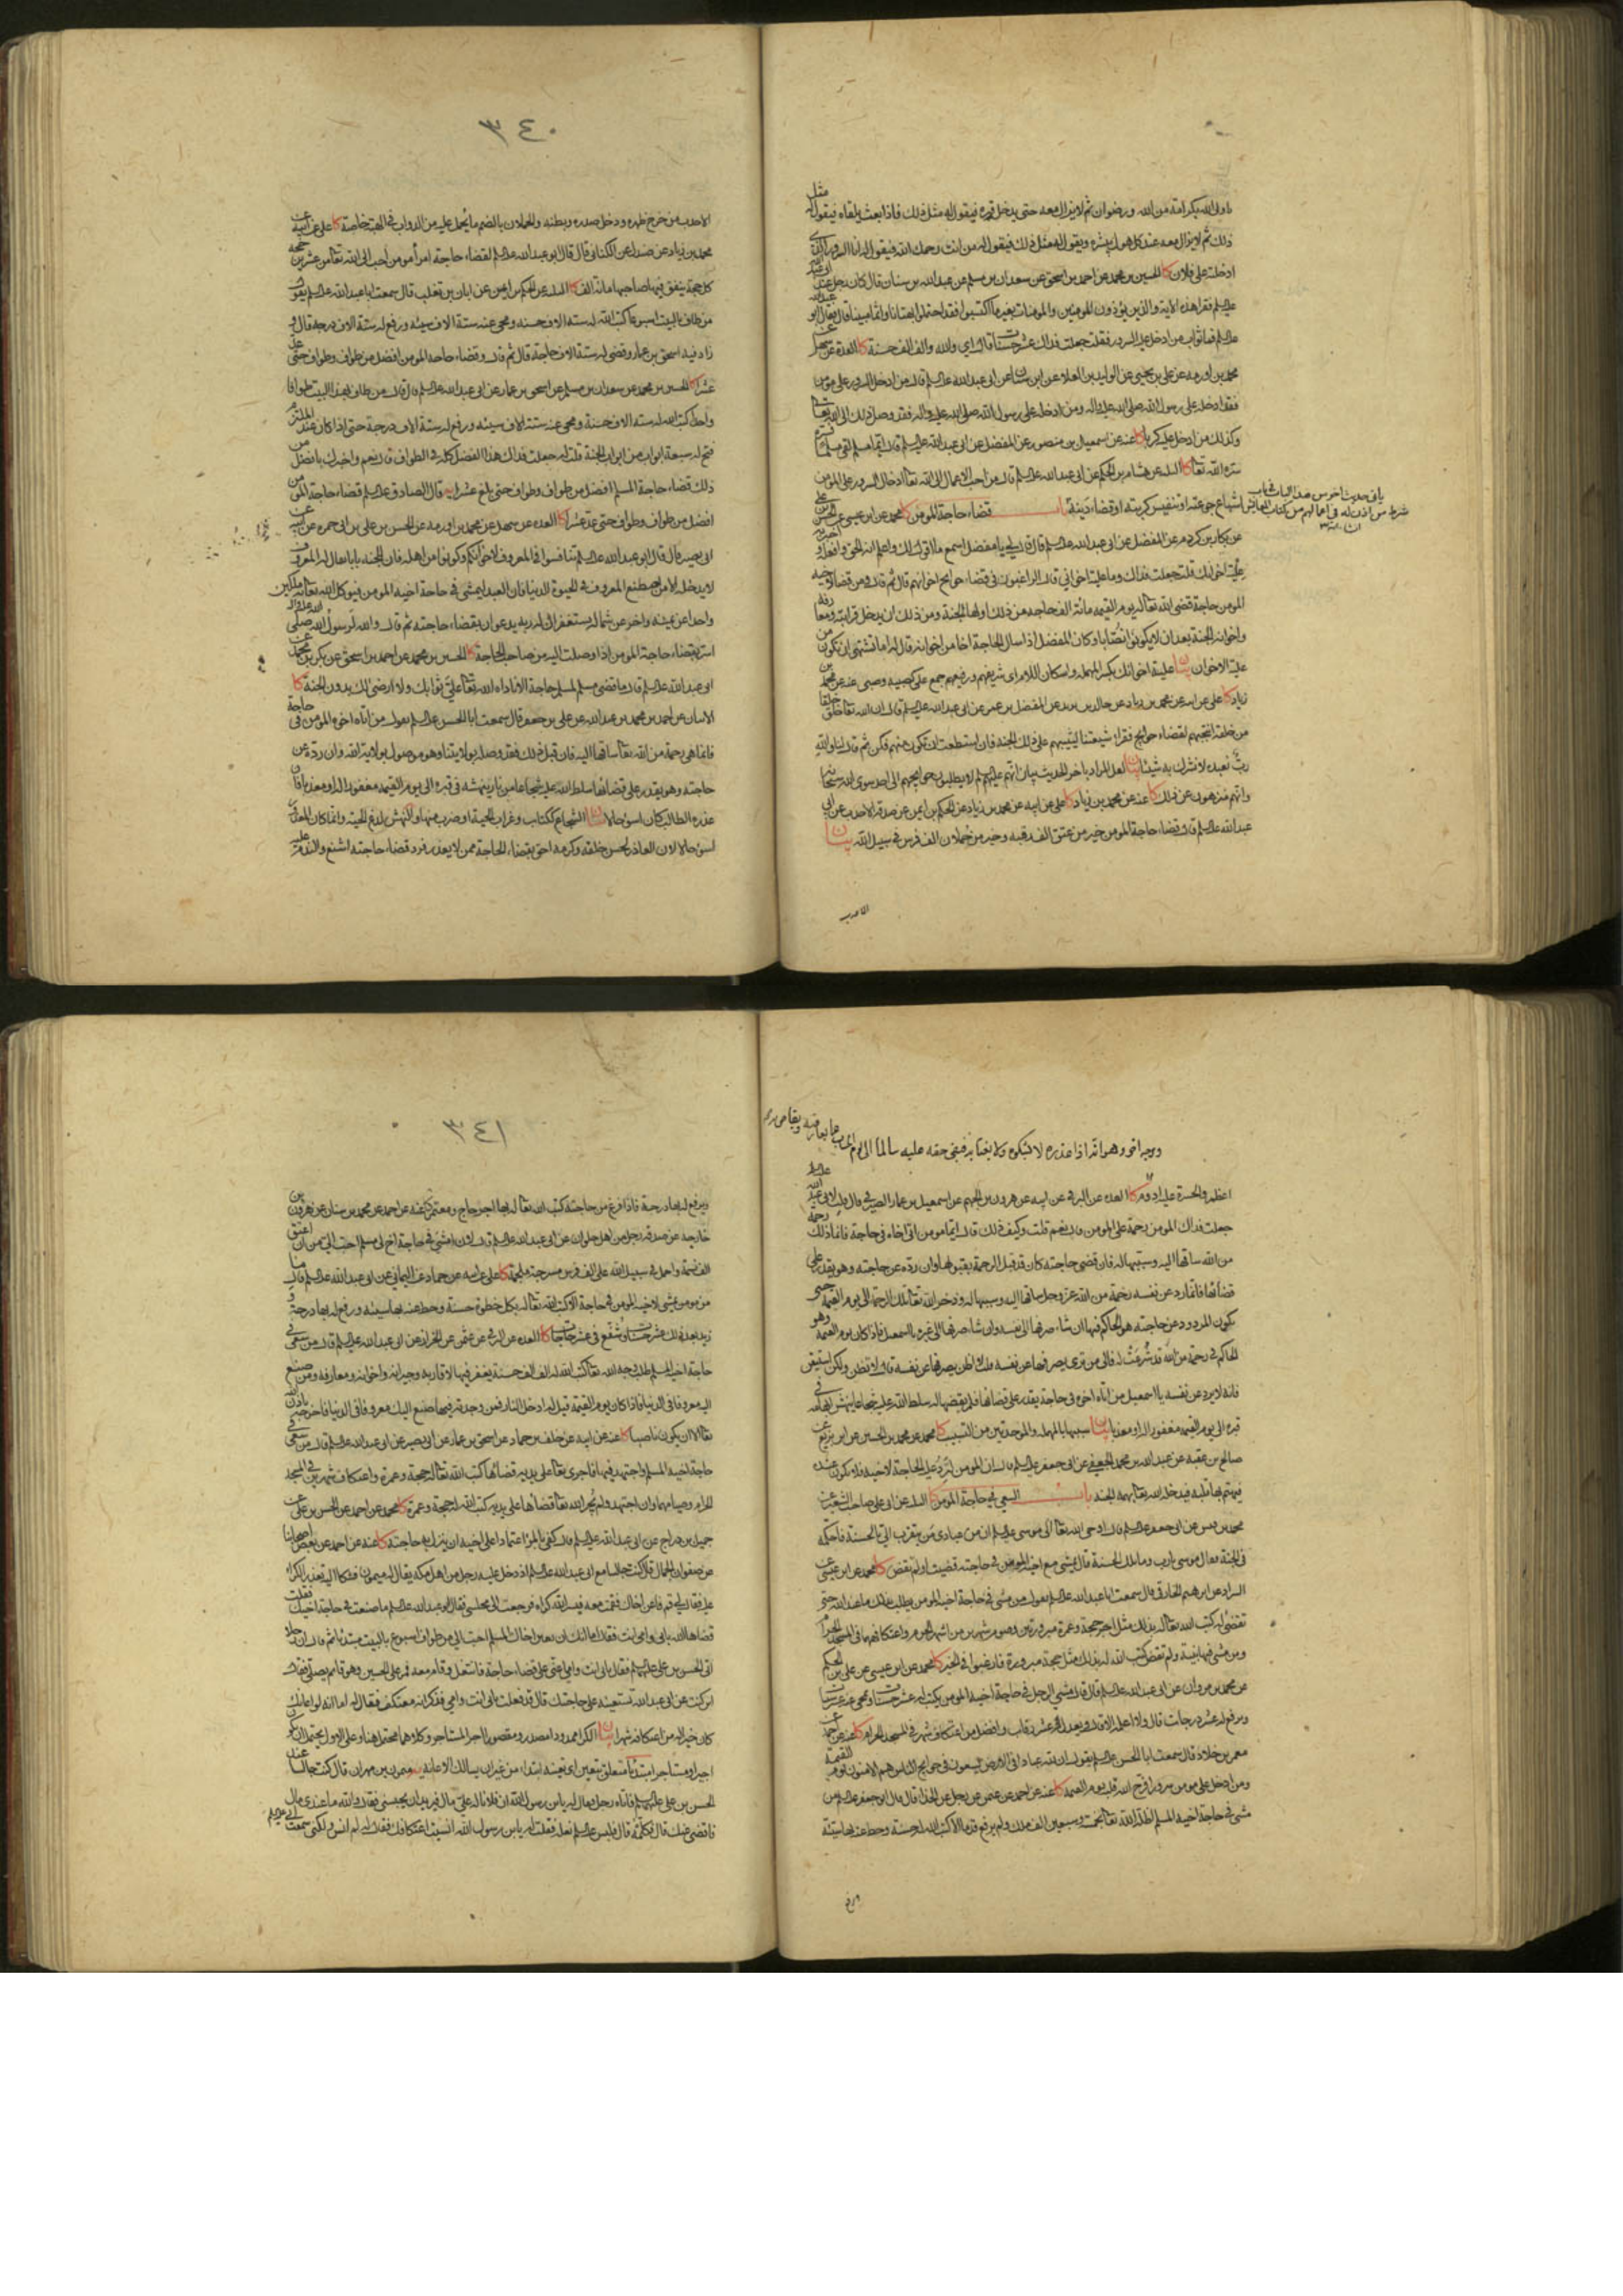 ٣٤٠
ذلك ثم لا يزال معه عند كل هول يبشره ويقول له مثل ذلك فيقول له من انت رحمك الله فيقول له انا السرور الذي
ادخلته على فلان كا الحسين بن محمد عن احمد بن اسحق عن سعدان بن مسلم عن عبدالله بن سنان قال كان رجل عند ابي عبد الله
عليه السلم فقرا هذه الاية والذين يؤذون المومنين والمومنات بغير ما اكتسبوا فقد احتملوا بهتانا واثما مبينا قال فقال ابو عبدالله
عليه السلم فما ثواب من ادخل عليه السرور فقلت جعلت فداك عشر حسنات قال اي والله والف الف حسنة كا العدة عن سهل عن
محمد بن اورمه عن علي بن يحيى عن الوليد بن العلاء عن ابن سنان عن ابي عبد الله عليه السلم قال من ادخل السرور على مومن
فقد ادخله على رسول الله صلى الله عليه واله ومن ادخله على رسول الله صلى الله عليه واله فقد وصل ذلك الى الله تعالى
وكذلك من ادخل عليه كربا كا عنه عن اسمعيل بن منصور عن المفضل عن ابي عبد الله عليه السلم قال ايما مسلم لقي مسلما فسره
سره الله تعالى كا الثلاثه عن هشام بن الحكم عن ابي عبد الله عليه السلم قال من احب الاعمال الى الله تعالى ادخال السرور على المومن
اشباع جوعته او تنفيس كربته او قضاء دينه باب قضاء حاجة المومن كا محمد عن ابن عيسى عن الحسن بن علي
عن بكار بن كردم عن المفضل عن ابي عبد الله عليه السلم قال قال لي يا مفضل اسمع ما اقول لك واعلم انه الحق وافعله واخبر به
علية اخوانك قلت جعلت فداك وما علية اخواني قال الراغبون في قضاء حوايج اخوانهم قال ثم قال ومن قضى لاخيه
المومن حاجة قضى الله تعالى له يوم القيمة مائة الف حاجة من ذلك اولها الجنة ومن ذلك ان يدخل قرابته ومعارفه
واخوانه الجنة بعد ان لا يكونوا نصابا وكان المفضل اذا سال الحاجة اخا من اخوانه قال له اما تشتهي ان تكون من
علية الاخوان بيان علية اخوانك بكسر المهملة واسكان اللام اي شريفهم ورفيعهم جمع علي كصبية وصبي عنه عن محمد بن
زياد كا علي عن ابيه عن محمد بن زياد عن خالد بن يزيد عن المفضل بن عمر عن ابي عبد الله عليه السلم قال ان الله تعالى خلق خلقا
من خلقه انتجبهم لقضاء حوايج فقراء شيعتنا ليثيبهم على ذلك الجنة فان استطعت ان تكون منهم فكن ثم قال لنا والله
رب نعبده لا نشرك به شيئا بيان لعل المراد باخر الحديث بيان انهم عليهم السلم لا يطلبون حوايجهم الى احد سوى الله سبحانه
وانهم منزهون عن ذلك كا عنه عن محمد بن زياد كا علي عن ابيه عن محمد بن زياد عن الحكم بن ايمن عن صدقة الاحدب عن ابي
عبد الله عليه السلم قال قضاء حاجة المومن خير من عتق الف رقبة وخير من حملان الف فرس في سبيل الله بيان
الاحدب
الاحدب من خرج ظهره ودخل صدره وبطنه والحملان بالضم ما يحمل عليه من الدواب في الهبة خاصة كا علي عن ابيه عن
محمد بن زياد عن صندل عن الكناني قال قال ابو عبد الله عليه السلم لقضاء حاجة امرأ مومن احب الى الله تعالى من عشرين حجة
كل حجة ينفق فيها صاحبها مائة الف كا الثلاثه عن الحكم بن ايمن عن ابان بن تغلب قال سمعت ابا عبد الله عليه السلم يقول
من طاف بالبيت اسبوعا كتب الله له ستة الاف حسنه ومحى عنه ستة الاف سيئه ورفع له ستة الاف درجه قال و
زاد فيه اسحق بن عمار وقضى له ستة الاف حاجة قال ثم قال وقضاء حاجة المومن افضل من طواف وطواف حتى عد
عشرا كا الحسين بن محمد عن احمد عن سعدان بن مسلم عن اسحق بن عمار عن ابي عبد الله عليه السلم قال من طاف بهذا البيت طوافا
واحدا كتب الله له ستة الاف حسنة ومحى عنه ستة الاف سيئه ورفع له ستة الاف درجة حتى اذا كان عند الملتزم
فتح له سبعة ابواب من ابواب الجنة قلت له جعلت فداك هذا الفضل كله في الطواف قال نعم واخبرك بافضل من
ذلك قضاء حاجة المسلم افضل من طواف وطواف حتى بلغ عشرا يه قال الصادق عليه السلم قضاء حاجة المومن
افضل من طواف وطواف حتى عد عشرا كا العدة عن سهل عن محمد بن اورمه عن الحسن بن علي بن ابي حمزه عن ابيه عن
ابي بصير قال قال ابو عبد الله عليه السلم تنافسوا في المعروف لاخوانكم وكونوا من اهله فان للجنة بابا يقال له المعروف
لا يدخله الا من اصطنع المعروف في الحيوة الدنيا فان العبد ليمشي في حاجة اخيه المومن فيوكل الله تعالى به ملكين
واحدا عن يمينه واخر عن شماله يستغفران له ربه يدعوان بقضاء حاجته ثم قال والله لرسول الله صلى الله عليه واله
اسر بقضاء حاجة المومن اذا وصلت اليه من صاحب الحاجة كا الحسين بن محمد عن احمد بن اسحق عن بكر بن محمد عن
ابي عبد الله عليه السلم قال ما قضى مسلم لمسلم حاجة الا ناداه الله تعالى علي ثوابك ولا ارضى لك بدون الجنة كا
الاثنان عن احمد بن محمد بن عبد الله عن علي بن جعفر قال سمعت ابا الحسن عليه السلم يقول من اتاه اخوه المومن في حاجة
فانما هي رحمة من الله تعالى ساقها اليه فان قبل ذلك فقد وصله بولايتنا وهو موصول بولاية الله وان رده عن
حاجته وهو يقدر على قضائها سلط الله عليه شجاعا من نار ينهشه في قبره الى يوم القيمة مغفور له او معذبا فان
عذره الطالب كان اسوء حالا بيان الشجاع ككتاب وغراب الحية او ضرب منها والنهش لدغ الحية وانما كان المعذور
اسوء حالا لان العاذر لحسن خلقه وكرمه احق بقضاء الحاجة ممن لا يعذر فرد قضاء حاجته اشنع والندم عليه
٣٤١
اعظم والحسرة عليه ادوم كا العده عن البرقي عن ابيه عن هرون بن الجهم عن اسمعيل بن عمار الصيرفي قال قلت لابي عبد الله عليه السلم
جعلت فداك المومن رحمة على المومن قال نعم قلت وكيف ذلك قال ايما مومن اتى اخاه في حاجة فانما ذلك رحمة
من الله ساقها اليه وسببها له فان قضى حاجته كان قد قبل الرحمة بقبولها وان رده عن حاجته وهو يقدر على
قضائها فانما رد عن نفسه رحمة من الله عز وجل ساقها اليه وسببها له وذخر الله تعالى تلك الرحمة الى يوم القيمة حتى
يكون المردود عن حاجته هو الحاكم فيها ان شاء صرفها الى نفسه وان شاء صرفها الى غيره يا اسمعيل فاذا كان يوم القيمة وهو
الحاكم في رحمة من الله قد شرعت له فالى من ترى يصرفها قلت لا اظن يصرفها عن نفسه قال لا تظن ولكن استيقن
فانه لا يردها عن نفسه يا اسمعيل من اتاه اخوه في حاجة يقدر على قضائها فلم يقضها له سلط الله عليه شجاعا ينهش ابهامه في
قبره الى يوم القيمة مغفور له او معذبا بيان سببها بالمهملة والموحدتين من التسبيب كا محمد عن محمد بن الحسين عن ابن بزيع عن
صالح بن عقبه عن عبد الله بن محمد الجعفي عن ابي جعفر عليه السلم قال ان المومن لترد عليه الحاجة لاخيه فلا تكون عنده
فيهتم بها قلبه فيدخله الله تعالى بهمه الجنة باب السعي في حاجة المومن
في الجنة فقال موسى يا رب وما تلك الحسنة قال يمشي مع اخيه المومن في حاجته قضيت او لم تقض كا محمد عن ابن عيسى عن
السراد عن ابرهيم الخارقي قال سمعت ابا عبد الله عليه السلم يقول من مشى في حاجة اخيه المومن يطلب بذلك ما عند الله حتى
تقضى له كتب الله تعالى له بذلك مثل اجر حجة وعمرة مبرورتين وصوم شهرين من اشهر الحرم واعتكافهما في المسجد الحرام
ومن مشى فيها بنية ولم تقض كتب الله له بذلك مثل حجة مبرورة فارغبوا في الخير كا محمد عن ابن عيسى عن علي بن الحكم
عن محمد بن مروان عن ابي عبد الله عليه السلم قال قال مشي الرجل في حاجة اخيه المومن يكتب له عشر حسنات ويمحى عنه عشر سيئات
ويرفع له عشر درجات قال ولا اعلمه الا قال ويعدل عشر رقاب وافضل من اعتكاف شهر في المسجد الحرام كا عنه عن احمد عن
معمر بن خلاد قال سمعت ابا الحسن عليه السلم يقول ان لله عبادا في الارض يسعون في حوايج الناس هم الامنون يوم القيمة
ومن ادخل على مومن سرورا فرح الله قلبه يوم القيمة كا عنه عن احمد عن عثمن عن رجل عن الحذاء قال قال ابو جعفر عليه السلم من
مشى في حاجة اخيه المسلم اظله الله تعالى بخمسة وسبعين الف ملك ولم يرفع قدما الا كتب الله له حسنة وحط عنه بها سيئة
ويرفع
ويرفع له بها درجة فاذا فرغ من حاجته كتب الله تعالى له بها اجر حاج ومعتمر كا عنه عن احمد عن محمد بن سنان عن هرون بن
خارجه عن صدقه رجل من اهل حلوان عن ابي عبد الله عليه السلم قال لان امشي في حاجة اخ لي مسلم احب الي من ان اعتق
الف نسمة واحمل في سبيل الله على الف فرس مسرجة ملجمة كا علي عن ابيه عن حماد عن اليماني عن ابي عبد الله عليه السلم قال ما
من مومن يمشي لاخيه المومن في حاجة الا كتب الله تعالى له بكل خطوة حسنة وحط عنه بها سيئه ورفع له بها درجة و
زيد بعد ذلك عشر حسنات وشفع في عشر حاجات كا العده عن البرقي عن عثمن عن الخزاز عن ابي عبد الله عليه السلم قال من سعى في
حاجة اخيه المسلم طلب وجه الله تعالى كتب الله له الف الف حسنة يغفر فيها لاقاربه وجيرانه واخوانه ومعارفه ومن صنع
اليه معروفا في الدنيا فاذا كان يوم القيمة قيل له ادخل النار فمن وجدته فيها صنع اليك معروفا في الدنيا فاخرجه باذن الله
تعالى الا ان يكون ناصبا كا عنه عن ابيه عن خلف بن حماد عن اسحق بن عمار عن ابي بصير عن ابي عبد الله عليه السلم قال من سعى في
حاجة اخيه المسلم واجتهد فيها فاجرى تعالى على يديه قضائها كتب الله تعالى له حجة وعمرة واعتكاف شهرين في المسجد
الحرام وصيامهما وان اجتهد ولم يجر الله تعالى قضائها على يديه كتب الله له حجة وعمرة كا محمد عن احمد عن الحسن بن علي عن
جميل بن دراج عن ابي عبد الله عليه السلم قال كفى بالمرء اعتمادا على اخيه ان ينزل به حاجته كا عنه عن احمد عن بعض اصحابنا
عن صفوان الجمال قال كنت جالسا مع ابي عبد الله عليه السلم اذ دخل عليه رجل من اهل مكه يقال له ميمون فشكا اليه تعذر الكراء
عليه فقال لي قم فاعن اخاك فقمت معه فيسر الله كراه فرجعت الى مجلسي فقال ابو عبد الله عليه السلم ما صنعت في حاجة اخيك فقلت
قضاها الله بابي وامي انت فقال اما انك ان تعين اخاك المسلم احب الي من طواف اسبوع بالبيت مبتدئا ثم قال ان رجلا
اتى الحسن بن علي عليهما السلم فقال بابي انت وامي اعني على قضاء حاجة فانتعل وقام معه فمر على الحسين وهو قائم يصلي فقال
اين كنت عن ابي عبد الله تستعينه على حاجتك قال قد فعلت بابي انت وامي فذكر انه معتكف فقال له اما انه لو اعانك
كان خيرا له من اعتكافه شهرا بيان
الحسن بن علي عليهما السلم فاتاه رجل فقال له يا بن رسول الله ان فلانا له علي مال ويريد ان يحبسني فقال والله ما عندي مال
فاقضي عنك قال فكلمه قال فلبس عليه السلم نعله فقلت له يا بن رسول الله انسيت اعتكافك فقال له لم انس ولكني سمعت ابي عليه السلم